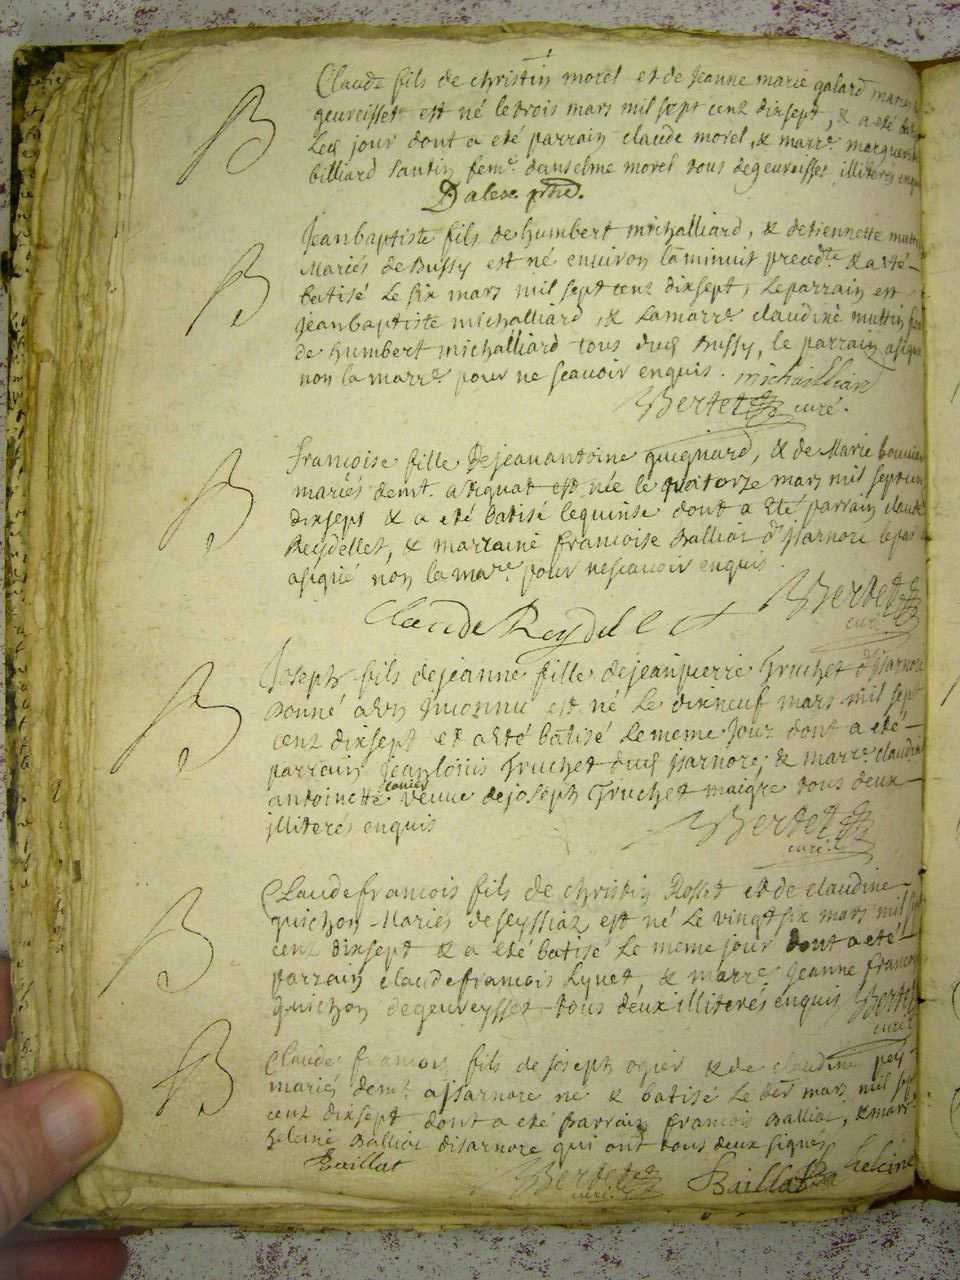 B Claude fils de christin morel et de Jeanne marie galard
geureisset est né le trois mars mil sept cent dixsept, & a eté
Led jour dont a eté parrain claude morel, & marre
billiard tantin feme danselme morel tous degeureisset illiteres
Dalex prtre.
B Jeanbaptiste fils de humbert michalliard, & detiennette
Mariés de Bussy est né enuiron la minuit precedte & a eté
batisé le six mars mil sept cent dixsept, Le parrain est
jeanbaptiste michalliard, & la marre claudine muttin
de humbert michalliard tous dud Bussy, le parrain a signé
non la marre pour ne scauoir enquis. michailliard
Bertet curé.
B francoise fille de jeanantoine guignard, & de Marie
mariés demt. a signat est née le quatorze mars mil sept cent
dixsept & a eté batisé lequinse dont a eté parrain claude
Reydellet, & marraine francoise Balliat d'jsarnore le par
a signé non la mare pour nescauoir enquis.
Claude Reydellet Bertet
curé
B Joseph fils dejeanne fille dejeanpierre Truchet d'jsarnore
donné a un jnconnu est né le dixneuf mars mil sept
cent dixsept et a eté batisé le meme jour dont a eté
parrain jeanlouis Truchet dud jsarnore, & marre claudine
antoinette veuue dejoseph Truchet maigre tous deux
jlliterés enquis Bertet
curé
B Claudefrancois fils de christin Rosset et de claudine
guichon Mariés deseyssiat est né le vingt six mars mil sept
cent dixsept & a eté batisé le meme jour dont a eté
parrain claudefrancois Lynet, & marre jeanne francoise
guichon degeureysset tous deux illiterés enquis Bertet
curé
B Claude francois fils de joseph ogier & de claudine
mariés demt. a jsarnore né & batisé le der mars mil sept
cent dixsept dont a eté parrain francois Balliat, & marr
heleine Balliat disarnore qui ont tous deux signés
Baillat Bertet Baillat heleine
curé